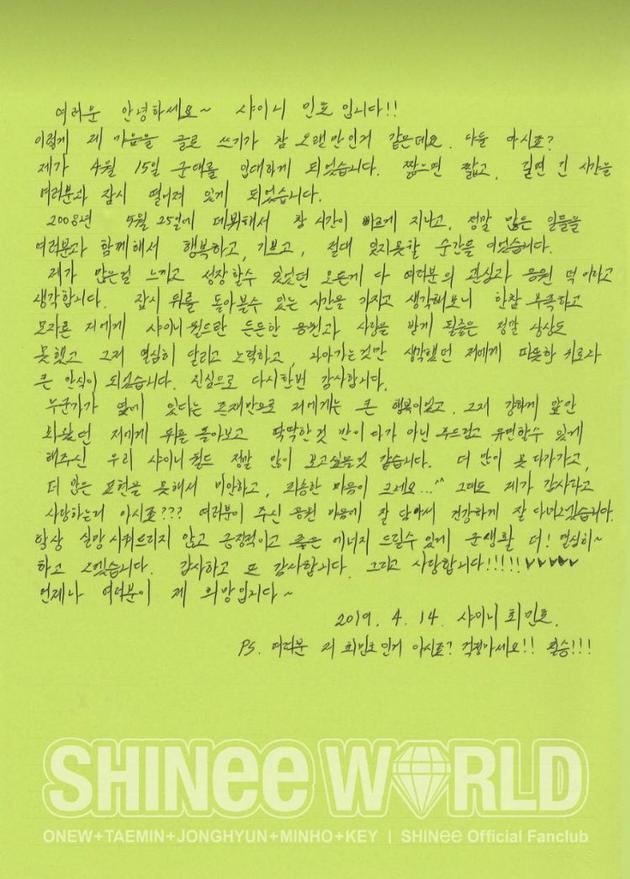 여러분 안녕하세요~ 샤이니 민호입니다!!
이렇게 제 마음을 글로 쓰기가 참 오랜만인거 같은데요. 다들 아시죠?
제가 4월 15일 군대를 입대하게 되었습니다. 짧으면 짧고, 길면 긴 시간을
여러분과 잠시 떨어져 있게 되었습니다.
2008년 5월 25일에 데뷔해서 참 시간이 빠르게 지나고, 정말 많은 일들을
여러분과 함께해서 행복하고, 기쁘고, 절대 잊지못할 순간들 이었습니다.
제가 많은걸 느끼고 성장할수 있었던 모든게 다 여러분의 관심과 응원 덕이라고
생각합니다. 잠시 뒤를 돌아볼수 있는 시간을 가지고 생각해보니 한참 부족하고
모자른 저에게 샤이니월드란 든든한 응원과 사랑을 받게 될줄은 정말 상상도
못했고 그저 열심히 달리고 노력하고, 나아가는것만 생각했던 저에게 따뜻한 위로와
큰 안식이 되었습니다. 진심으로 다시한번 감사합니다.
누군가가 옆에 있다는 존재만으로 저에게는 큰 행복이었고. 그저 강하게 앞만
봐왔던 저에게 뒤를 돌아보고 딱딱한것 만이 다가 아닌 부드럽고 유연할수 있게
해주신 우리 샤이니월드 정말 많이 보고싶을것 같습니다. 더 많이 못 다가가고,
더 많은 표현을 못해서 미안하고, 죄송한 마음이 크네요...^^ 그래도 제가 감사하고
사랑하는거 아시죠??? 여러분이 주신 응원 마음에 잘 담아서 건강하게 잘 다녀오겠습니다.
항상 실망시켜드리지 않고 긍정적이고 좋은 에너지 드릴수 있게 군생활 더! 열심히~
하고 오겠습니다. 감사하고 또 감사합니다. 그리고 사랑합니다!!!!!♥♥♥♥♥
언제나 여러분이 제 희망입니다~
2019. 4. 14. 샤이니 최민호.
PS. 여러분 저 최민호인거 아시죠? 걱정마세요!! 필승!!!
SHINee WORLD
ONEW+TAEMIN+JONGHYUN+MINHO+KEY | SHINee Official Fanclub